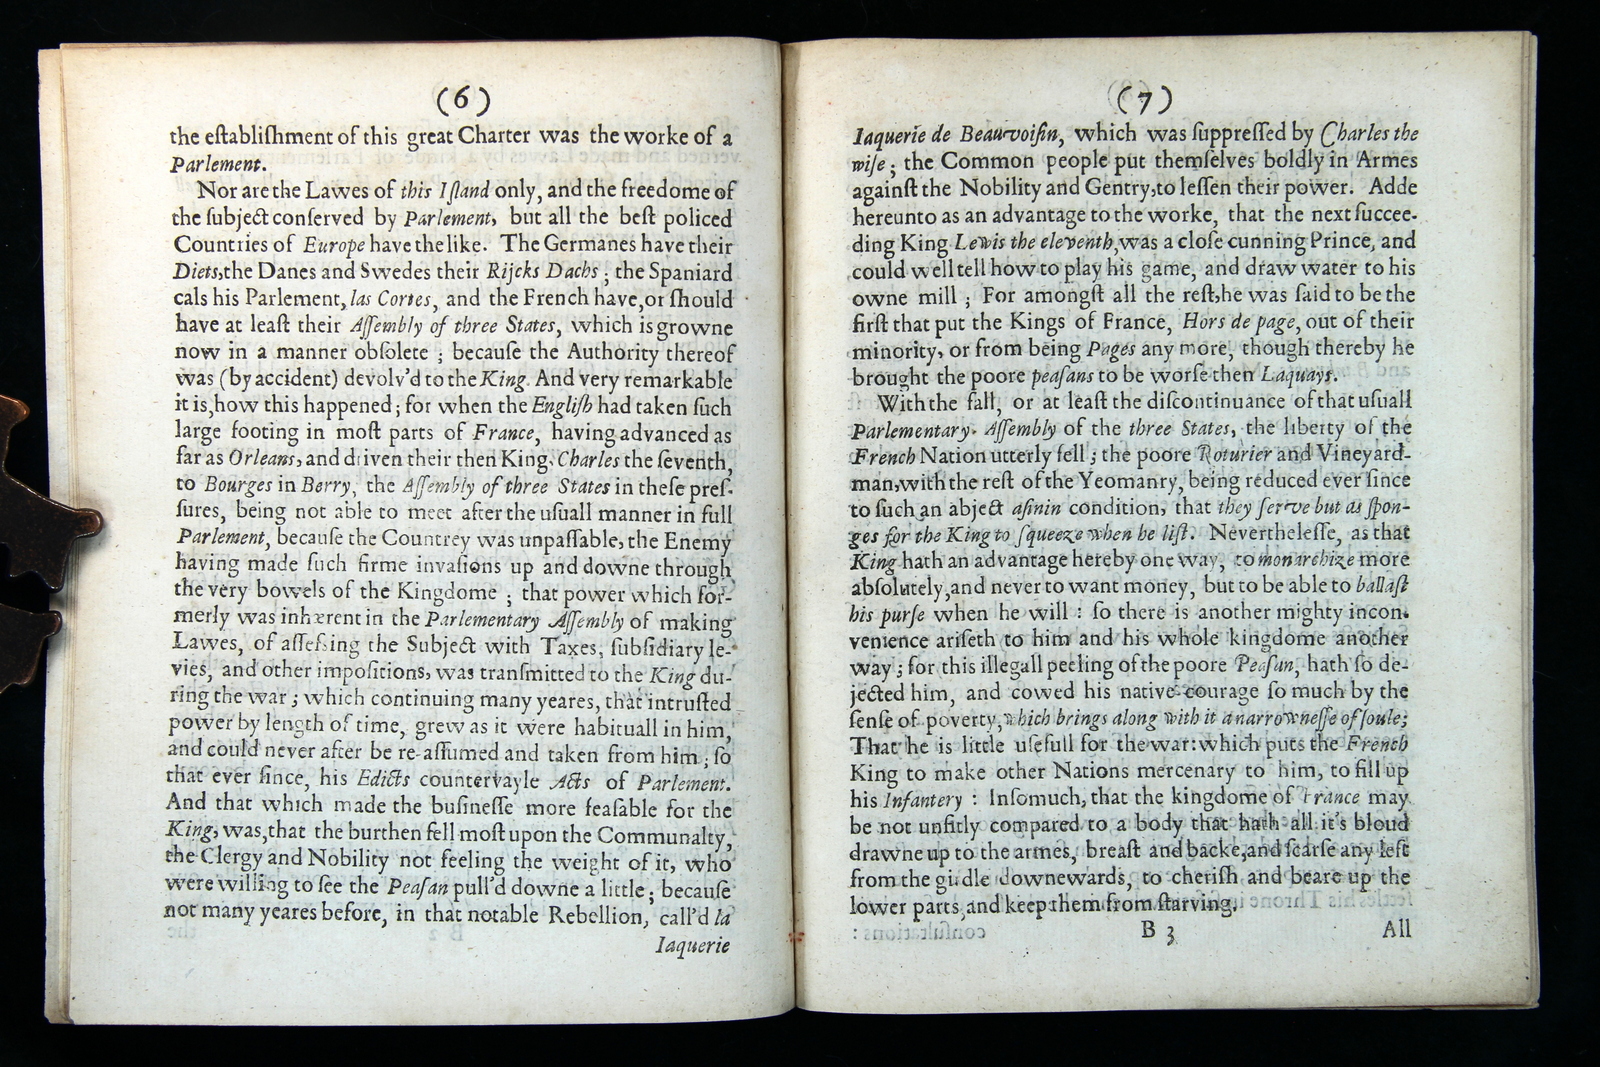 (6)
the eſtabliſhment of this great Charter was the worke of a
Parlement.
Nor are the Lawes of this Iſland only, and the freedome of
the ſubject conſerved by Parlement, but all the beſt policed
Countries of Europe have the like. The Germanes have their
Diets, the Danes and Swedes their Rijcks Dachs; the Spaniard
cals his Parlement, las Cortes, and the French have, or ſhould
have at leaſt their Aſſembly of three States, which is growne
now in a manner obſolete; becauſe the Authority thereof
was (by accident) devolv'd to the King. And very remarkable
it is, how this happened; for when the Engliſh had taken ſuch
large footing in moſt parts of France, having advanced as
far as Orleans, and driven their then King, Charles the ſeventh,
to Bourges in Berry, the Aſſembly of three States in theſe preſ-
ſures, being not able to meet after the uſuall manner in full
Parlement, becauſe the Countrey was unpaſſable, the Enemy
having made ſuch firme invaſions up and downe through
the very bowels of the Kingdome; that power which for-
merly was inhærent in the Parlementary Aſſembly of making
Lawes, of aſſeſsing the Subject with Taxes, ſubſidiary le-
vies, and other impoſitions, was tranſmitted to the King du-
ring the war; which continuing many yeares, that intruſted
power by length of time, grew as it were habituall in him,
and could never after be re-aſſumed and taken from him; ſo
that ever ſince, his Edicts countervayle Acts of Parlement.
And that which made the buſineſſe more feaſable for the
King, was, that the burthen fell moſt upon the Communalty,
the Clergy and Nobility not feeling the weight of it, who
were willing to ſee the Peaſan pull'd downe a little; becauſe
not many yeares before, in that notable Rebellion, call'd la
Iaquerie
(7)
Iaquerie de Beauvoiſin, which was ſuppreſſed by Charles the
wiſe; the Common people put themſelves boldly in Armes
againſt the Nobility and Gentry, to leſſen their power. Adde
hereunto as an advantage to the worke, that the next ſuccee-
ding King Lewis the eleventh, was a cloſe cunning Prince, and
could well tell how to play his game, and draw water to his
owne mill; For amongſt all the reſt, he was ſaid to be the
firſt that put the Kings of France, Hors de page, out of their
minority, or from being Pages any more, though thereby he
brought the poore peaſans to be worſe then Laquays.
With the fall, or at leaſt the diſcontinuance of that uſuall
Parlementary Aſſembly of the three States, the liberty of the
French Nation utterly fell; the poore Roturier and Vineyard-
man, with the reſt of the Yeomanry, being reduced ever ſince
to ſuch an abject aſinin condition, that they ſerve but as ſpon-
ges for the King to ſqueeze when he liſt. Nevertheleſſe, as that
King hath an advantage hereby one way, to monarchize more
abſolutely, and never to want money, but to be able to ballaſt
his purſe when he will: ſo there is another mighty incon-
venience ariſeth to him and his whole kingdome another
way; for this illegall peeling of the poore Peaſan, hath ſo de-
jected him, and cowed his native courage ſo much by the
ſenſe of poverty, which brings along with it a narrowneſſe of ſoule;
That he is little uſefull for the war: which puts the French
King to make other Nations mercenary to him, to fill up
his Infantery: Inſomuch, that the kingdome of France may
be not unfitly compared to a body that hath all it's bloud
drawne up to the armes, breaſt and backe, and ſcarſe any left
from the girdle downewards, to cheriſh and beare up the
lower parts, and keep them from ſtarving.
B 3 All